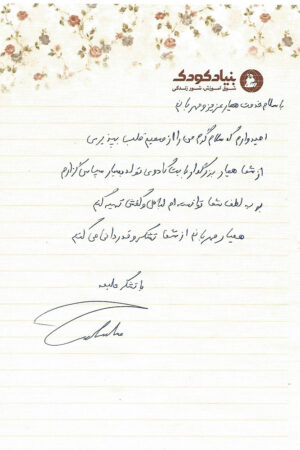 بنیاد کودک
شوق آموزش، شور زندگی
با سلام خدمت همیار عزیز و مهربانم
امیدوارم که سلام گرم من را از صمیم قلب بپذیرید
از شما همیار بزرگوار بابت کادوی تولد بسیار سپاس گزارم
من به لطف شما توانستم لباس و کفش تهیه کنم
همیار مهربانم از شما تشکر و قدردانی می کنم
با تشکر